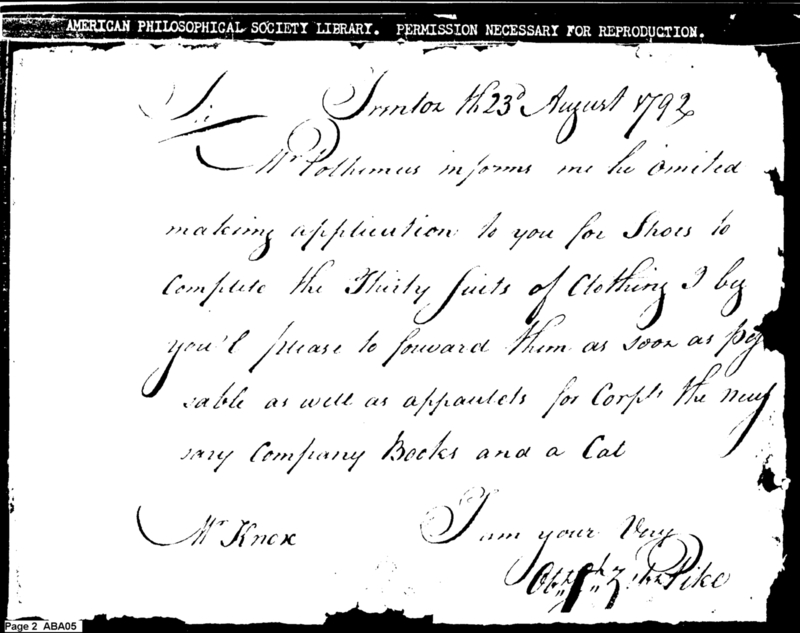 AMERICAN PHILOSOPHICAL SOCIETY LIBRARY. PERMISSION NECESSARY FOR REPRODUCTION.
Sir Trenton th 23d August 1792
Mr Polhemus informs me he omited
making application to you for Shoes to
complete the Thirty suits of Clothing I beg
you'l please to forward them as soon as pos
sable as well as appaulets for Corpls the neces
sary Company Books and a Cat
Mr Knox I am your Very
Obt Zebn Pike
Page 2 ABA05